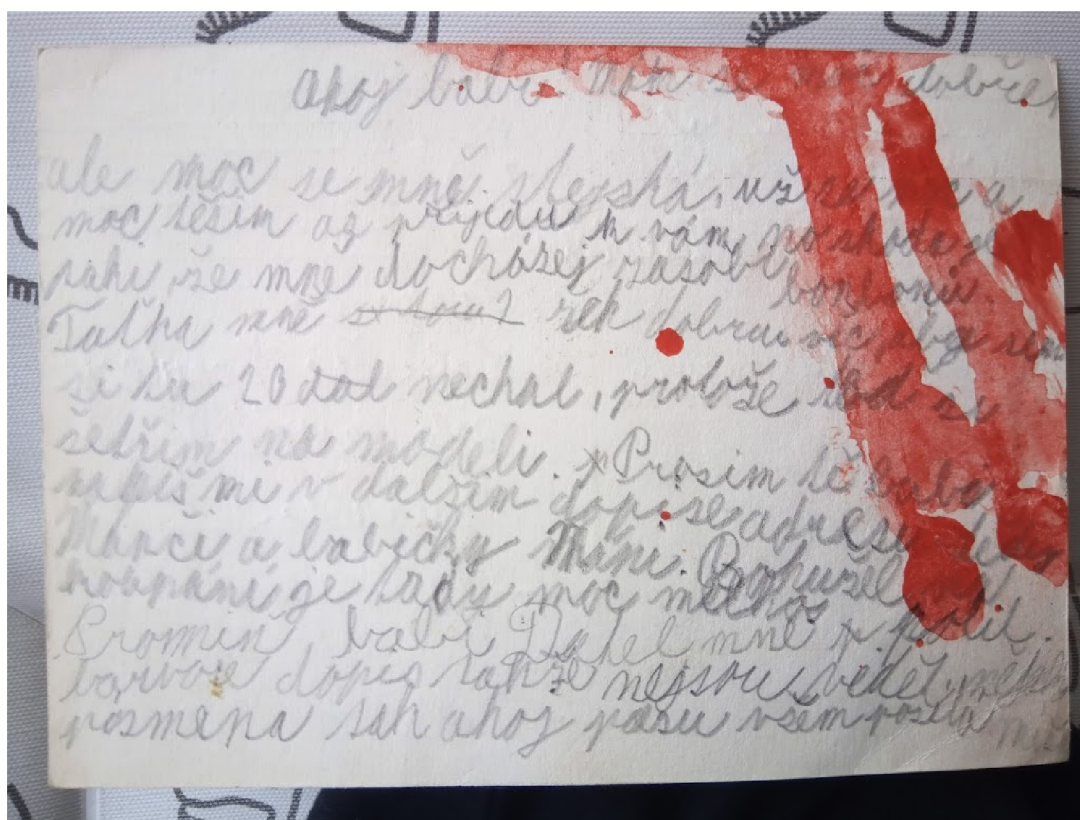 Ahoj babi! Mám se dobře,
ale moc se mně stejská, už se a
moc těším až přijedu k vám, no škoda je
taky, že mně docházej zásobi
bonbonů.
Taťka mně řek dobrou věc, abg sem
si tu 20 dal nechal, protože teď si
šetřim na modeli. x Prosim tě babi
napiš mi v dalšim dopise adresu dědy
Marči a babičky Máni. Bohužel na
koupání je tady moc mechos
Promiň babi Dahel mně x polil
barvoje dopis takže nejsou videt, některé
písmena tak ahoj pusu všem posilg